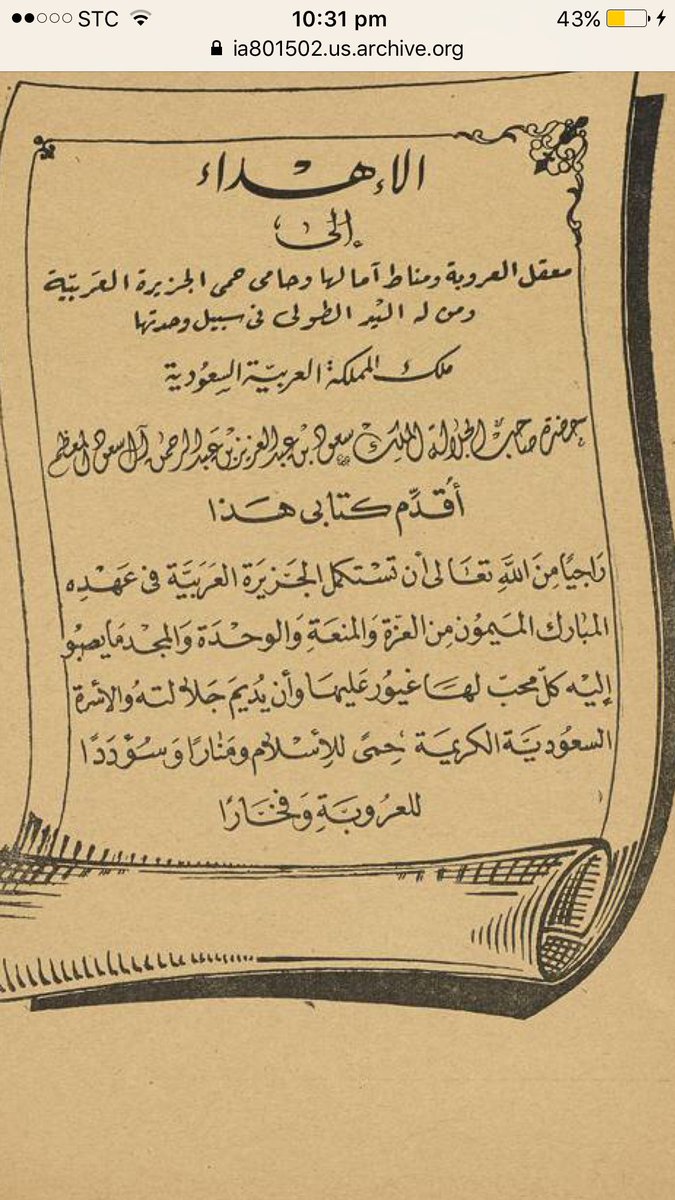 STC 10:31 pm 43%
ia801502.us.archive.org
الإهداء
إلى
معقل العروبة ومناط آمالها وحامى حمى الجزيرة العَربيّة
ومن له اليْد الطولى فى سبيل وحدتها
ملك المملكة العربيّة السعُودية
حضرة صاحب الجلالة الملك سعود بن عبد العزيز بن عبد الرحمن آل سعود المعظم
أُقدِّم كتابى هَذا
رَاجيًا مِنَ اللَّهِ تعَالى أن تَسْتكمل الجَزيرَة العَرَبَيَّة فى عَهْدِه
المبَارك الميمُون مِن العزّة وَالمنعَةِ وَالوحدَة وَالمجد مَا يصبُو
إليْه كلّ محبّ لهَا غيُور عَليهَا وأن يُديمَ جَلالتهُ والأسْرة
السعُوديَّة الكريمَة حِمىً للإسْلام ومَنارًا وَسُؤْدَدًا
للعرُوبَةِ وَفخَارًا